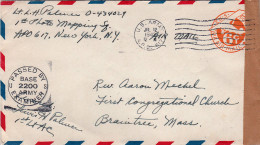 Lt. L. H. Palmer O-434029
1st Photo Mapping Sq.
APO 617, New York, N.Y.
U.S. ARMY
AIR MAIL
6¢
PASSED BY
BASE
2200
ARMY
EXAMINER
Palmer
1st Lt. AC
Rev Aaron Meckel
First Congregational Church
Braintree, Mass.